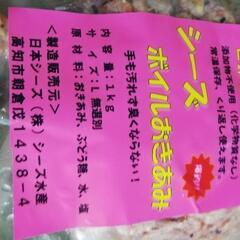 添加物不使用(化学物質なし)
常温保存、くり返し使えます。
シーズ
ボイルおきあみ
手も汚れず臭くならない!
内容量：1kg
サイズ：L 無選別
原材料：おきあみ、ぶどう糖、水、塩
<製造販売元>
日本シーズ（株）シーズ水産
高知市朝倉戊1438-4